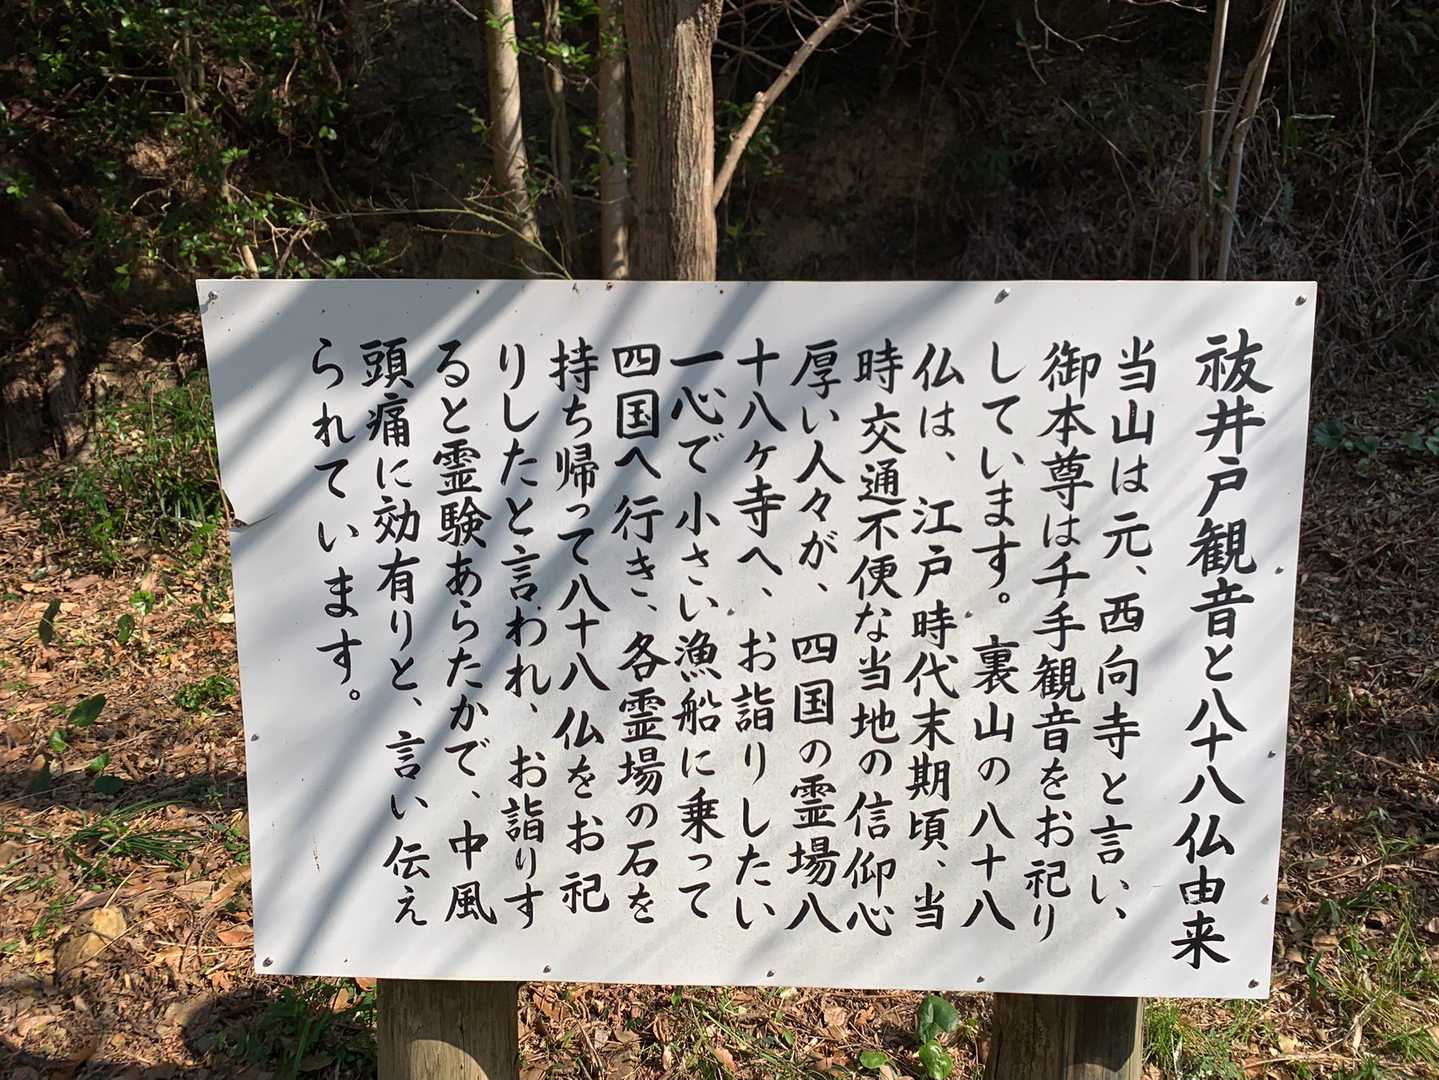 祓井戸観音と八十八仏由来
当山は元、西向寺と言い、
御本尊は千手観音をお祀り
しています。裏山の八十八
仏は、江戸時代末期頃、当
時交通不便な当地の信仰心
厚い人々が、四国の霊場八
十八ヶ寺へ、お詣りしたい
一心で小さい漁船に乗って
四国へ行き、各霊場の石を
持ち帰って八十八仏をお祀
りしたと言われ、お詣りす
ると霊験あらたかで、中風
頭痛に効有りと、言い伝え
られています。